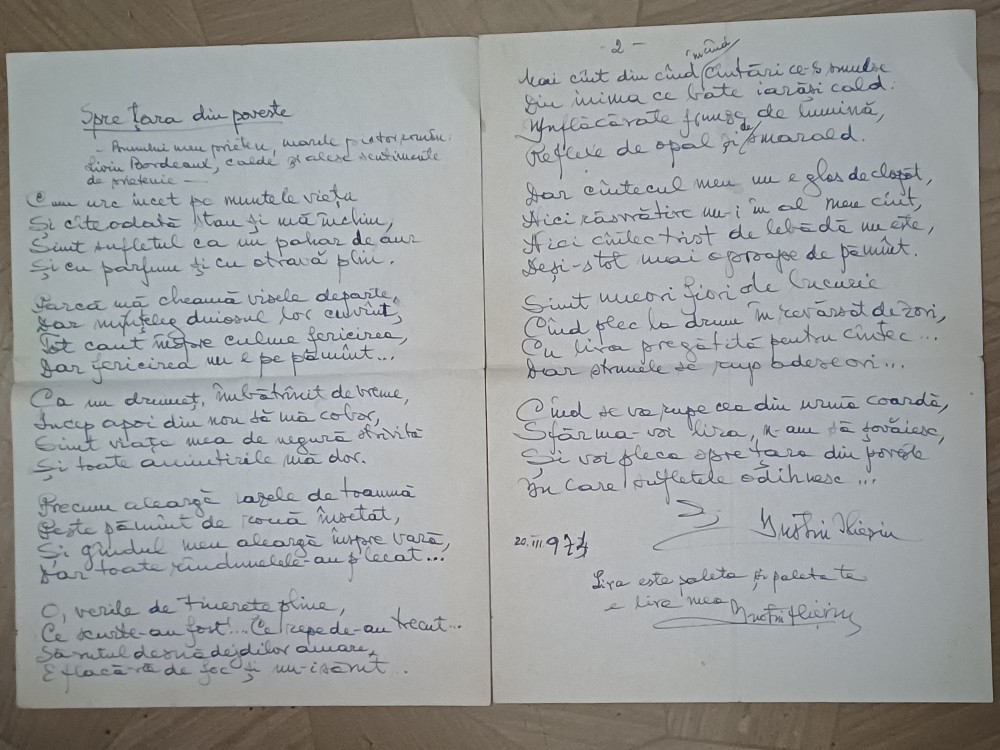 Spre țara din poveste
- Amului meu prieten, marele pictor român:
Liviu Bordeaux, calde și alese sentimente
de prietenie -
Eu urc încet pe muntele viața
Și cîte odată stau și mă închin,
Simt sufletul ca un pahar de aur
Și cu parfum și cu otravă plin.
Parcă mă cheamă visele departe,
Dar nu-nțeleg duiosul lor cuvînt,
Tot caut înspre culme fericirea,
Dar fericirea nu e pe pămînt...
Ca un drumeț, îmbătrînit de vreme,
Încep apoi din nou să mă cobor,
Simt viața mea de negură strivită
Și toate amintirile mă dor.
Precum aleargă razele de toamnă
Peste pămînt de rouă însetat,
Și gîndul meu aleargă înspre vară,
Dar toate rîndunelele-au plecat...
O, verile de tinerețe pline,
Ce scurte-au fost!... Ce repede-au trecut...
Sărutul deznădejdilor amare,
E flacără de foc și nu-i sărut.
- 2 -
Mai cînt din cînd în cînd cîntări ce-s smulse
Din inima ce bate iarăși cald:
Înflăcărate frunze de lumină,
Reflexe de opal și de smarald.
Dar cîntecul meu nu e glas de clopot,
Nici răsvrătire nu-i în al meu cînt,
Nici cîntec trist de lebădă nu este,
Deși-s tot mai aproape de pămînt.
Simt uneori fiori de bucurie
Cînd plec la drum în revărsat de zori,
Cu lira pregătită pentru cîntec...
Dar strunele se rup adeseori...
Cînd se va rupe cea din urmă coardă,
Sfărma-voi lira, n-am să șovăiesc,
Și voi pleca spre țara din poveste
În care sufletele odihnesc...
Iustin Ilieșiu
20.III.974
Lira este paleta și paleta ta
e lira mea
Iustin Ilieșiu